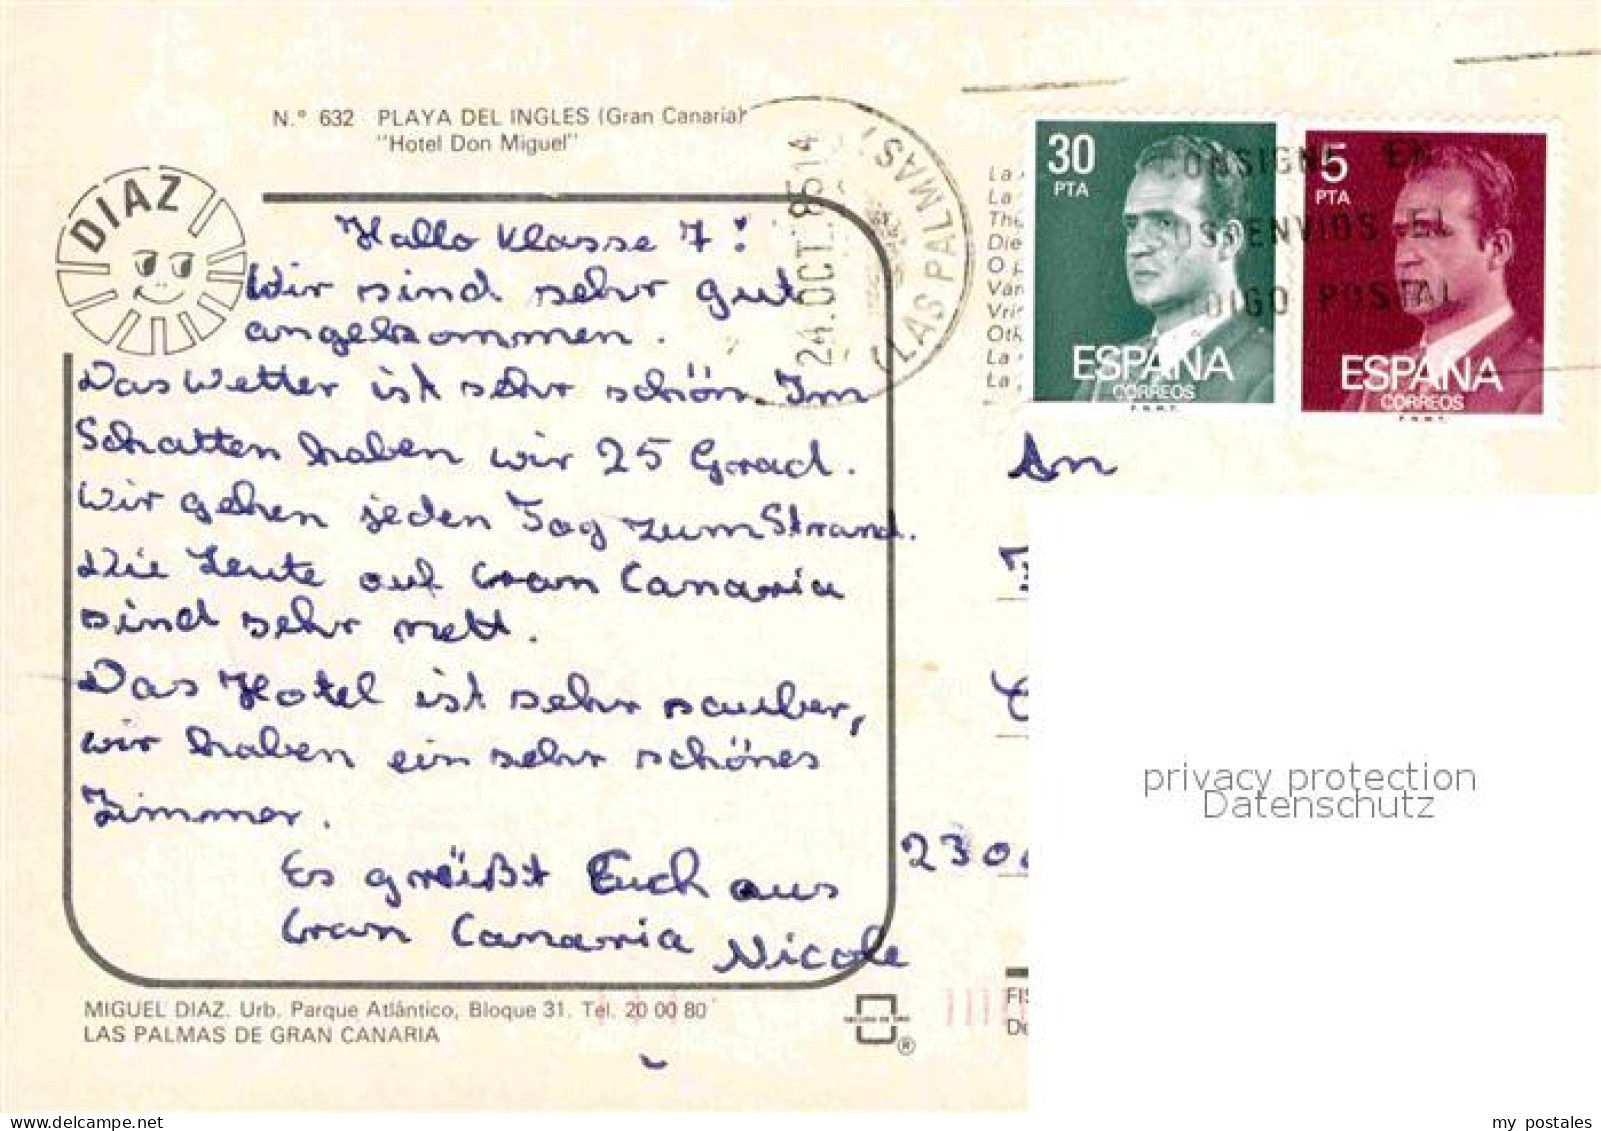 N.° 632 PLAYA DEL INGLES (Gran Canaria)
"Hotel Don Miguel"
DIAZ
Hallo Klasse 7!
Wir sind sehr gut
angekommen.
Das Wetter ist sehr schön. Im
Schatten haben wir 25 Grad.
Wir gehen jeden Tag zum Strand.
Die Leute auf Gran Canaria
sind sehr nett.
Das Hotel ist sehr sauber,
wir haben ein sehr schönes
Zimmer.
Es grüßt Euch aus
Gran Canaria Nicole
MIGUEL DIAZ. Urb. Parque Atlântico, Bloque 31. Tel. 20 00 80
LAS PALMAS DE GRAN CANARIA
®
24.OCT.85 14
LAS PALMAS
La
La
The
Die
O
Van
Vrij
Oth
La
La
30
PTA
ESPAÑA
CORREOS
F.N.M.T.
5
PTA
ESPAÑA
CORREOS
F.N.M.T.
CONSIGNE EN
SUS ENVIOS EL
CODIGO POSTAL
An
230
FIS
De
privacy protection
Datenschutz
my postales